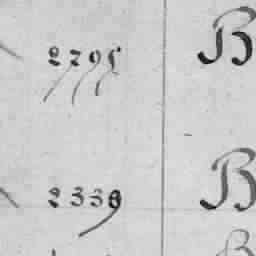 2795 B
2338 B